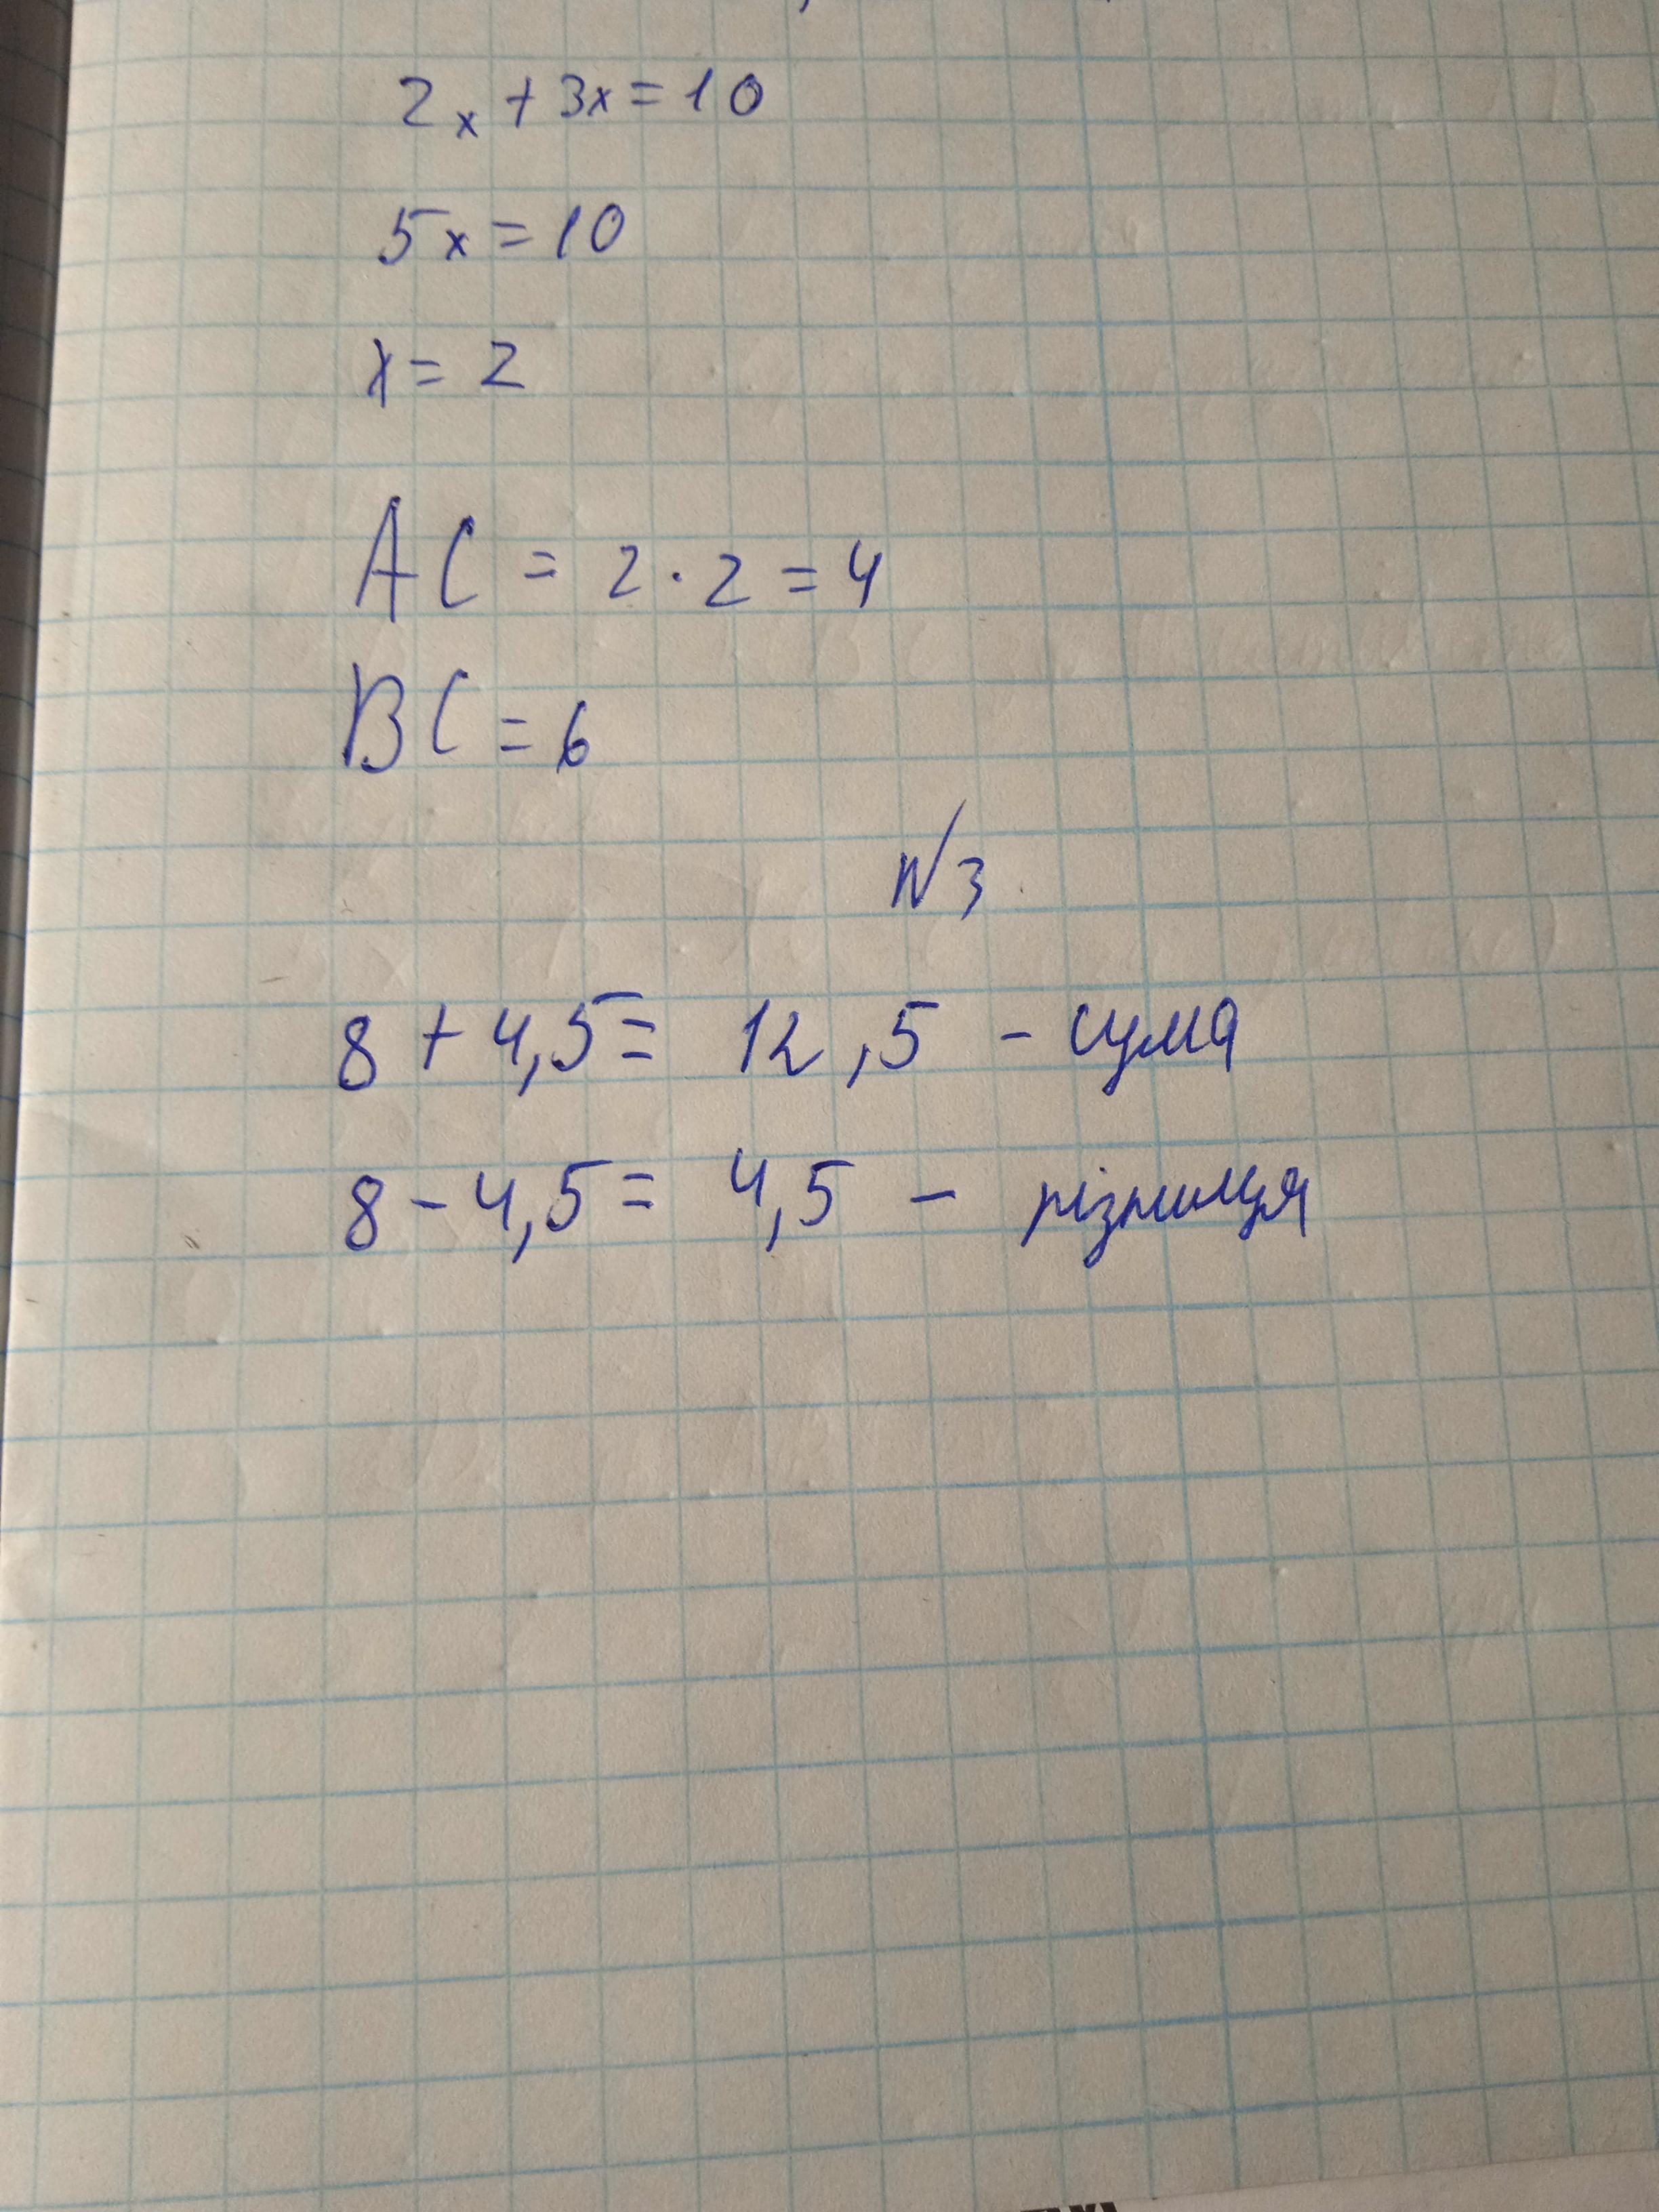 2x + 3x = 10
5x = 10
x = 2
AC = 2 · 2 = 4
BC = 6
№3
8 + 4,5 = 12,5 - сума
8 - 4,5 = 4,5 - різниця